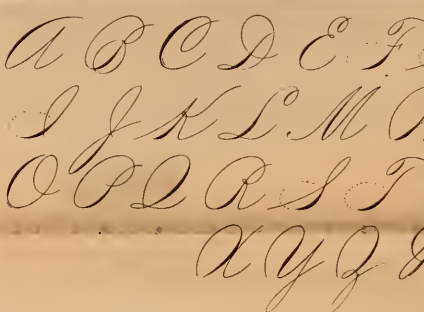 A B C D E F
I J K L M
O P Q R S T
X Y Z